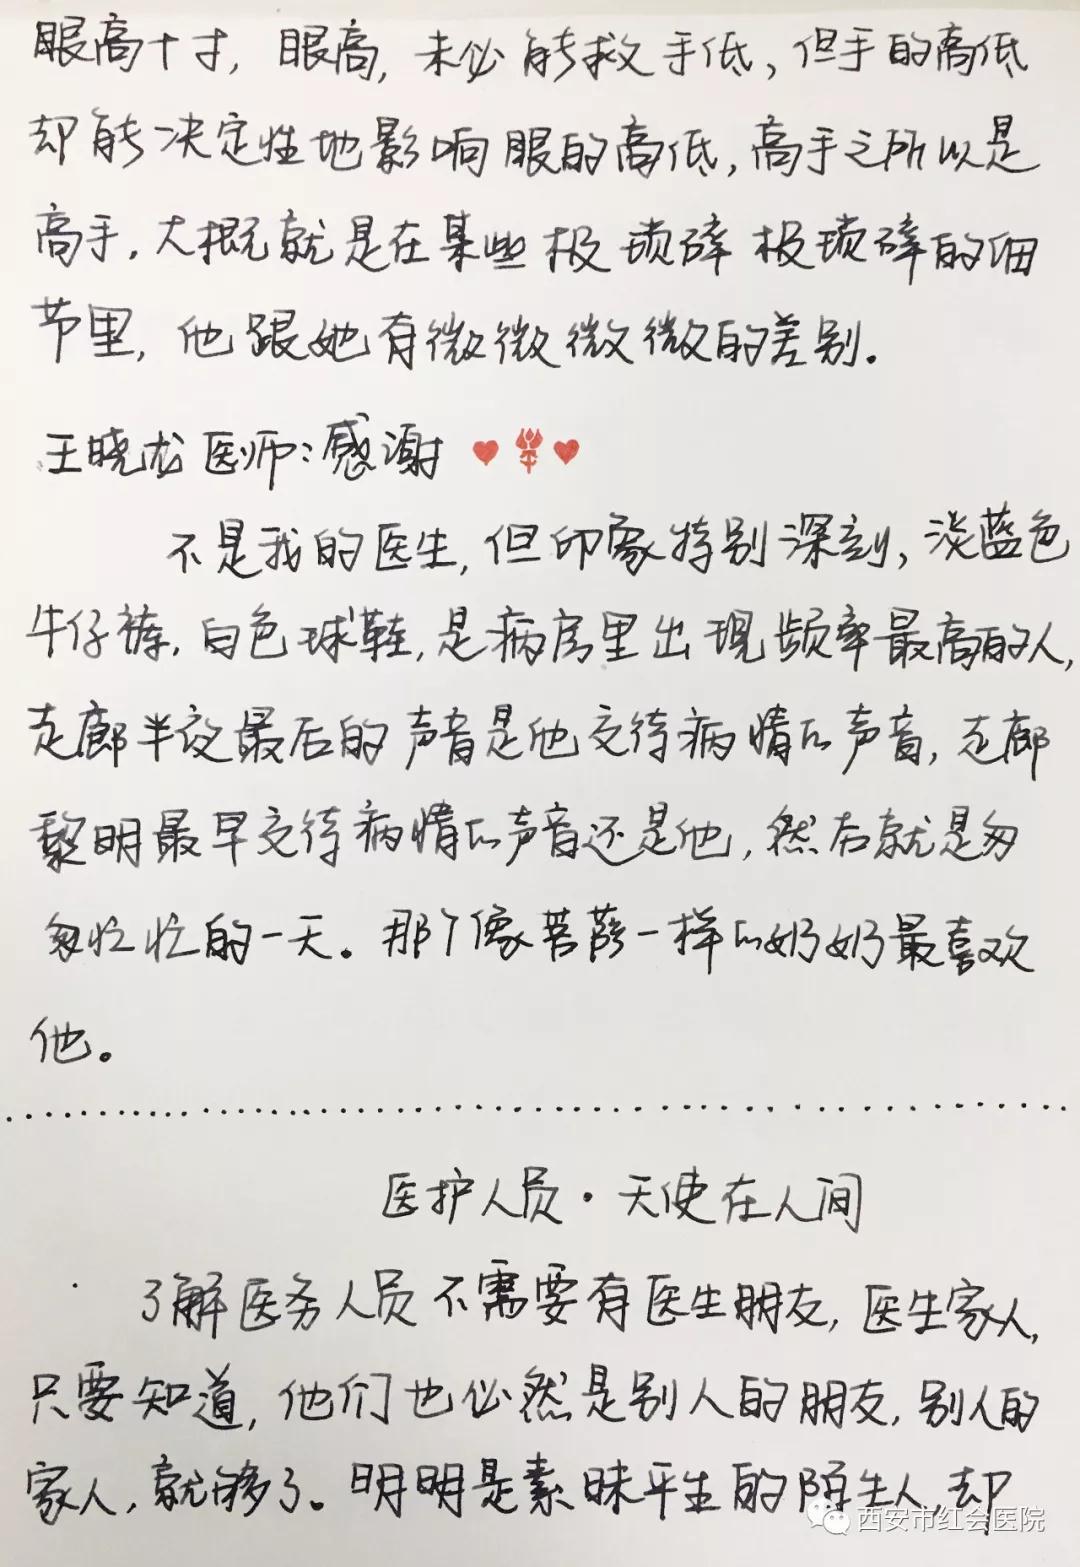 眼高十寸，眼高，未必能救手低，但手的高低
却能决定性地影响眼的高低，高手之所以是
高手，大概就是在某些极琐碎极琐碎的细
节里，他跟她有微微微微的差别。
王晓龙医师：感谢
不是我的医生，但印象特别深刻，淡蓝色
牛仔裤，白色球鞋，是病房里出现频率最高的人，
走廊半夜最后的声音是他交待病情的声音，走廊
黎明最早交待病情的声音还是他，然后就是匆
匆忙忙的一天。那个像菩萨一样的奶奶最喜欢
他。
医护人员·天使在人间
了解医务人员不需要有医生朋友，医生家人，
只要知道，他们也必然是别人的朋友，别人的
家人，就够了。明明是素昧平生的陌生人，却
西安市红会医院